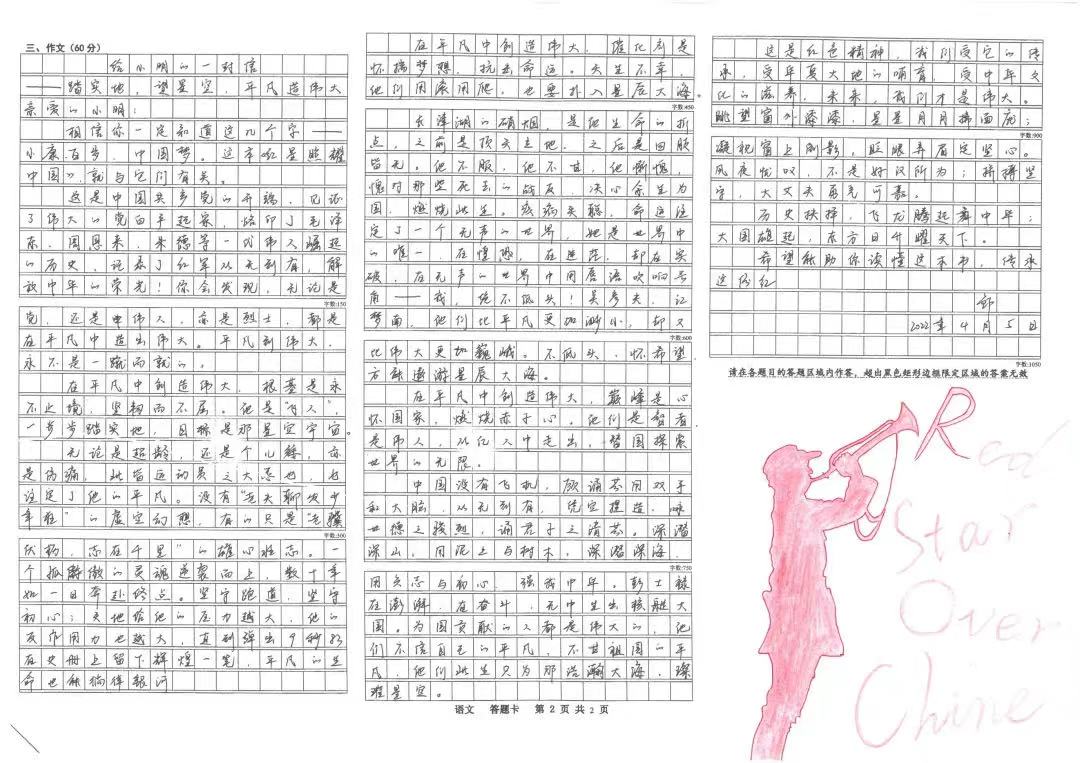 三、作文(60分)
给小明的一封信
——踏实地,望星空,平凡造伟大
亲爱的小明:
相信你一定知道这几个字——
小康、百步、中国梦。这本《红星照耀
中国》,就与它们有关。
这是中国共产党的开端,见证
了伟大的党白手起家,烙印了毛泽
东、周恩来、朱德等一代伟人崛起
的历史,记录了红军从无到有,解
放中华的荣光!你会发现,无论是
字数:150
党,还是伟人,亦是烈士,都是
在平凡中造出伟大。平凡到伟大,
永不是一蹴而就的。
在平凡中创造伟大,根基是永
不止境,坚韧而不屈。他是“飞人”,
一步步踏实地,目标是那星空宇宙。
无论是超龄,还是个儿矮,亦
是伤痛,此皆运动员之大忌也,也
注定了他的平凡。没有“老夫聊发少
年狂”的虚空幻想,有的只是“老骥
字数:300
伏枥,志在千里”的雄心壮志。一
个孤傲的灵魂逆袭而上,数十年
如一日奔赴终点。坚守跑道,坚守
初心;天地给他的压力越大,他的
反作用力也越大,直到弹出9秒83
在史册上留下辉煌一笔,平凡的生
命也能徜徉银河
在平凡中创造伟大,催化剂是
怀揣梦想,抗击命运。天生不幸,
他们用滚用爬,也要扑入星辰大海。
字数:450
长津湖的硝烟,是他生命的折
点,之前是顶天立地,之后是四肢
皆无。他不服,他不甘,他惭愧,
愧对那些死去的战友,决心余生为
国,燃烧此生。疾病失聪,命运注
定了一个无声的世界,她是世界中
的唯一,在惶恐,在迷茫,却在突
破,在无声的世界中用唇语吹响号
角——我,绝不低头!吴孝夫,江
梦南,他们比平凡更加渺小,却又
字数:600
比伟大更加巍峨。不低头,怀希望
方能遨游星辰大海。
在平凡中创造伟大,巅峰是心
怀国家,燃烧赤子心。他们是智者
是伟人,从亿人中走出,替国探索
世界的无限。
中国没有飞机,顾诵芬用双手
和大脑,从无到有,凭空捏造,咏
世德之骏烈,诵君子之清芬。深潜
深山,用泥土与树木,深潜深海,
字数:750
用矢志与初心,强我中华。彭士禄
在澎湃,在奋斗,无中生出核艇大
国。为国贡献的人都是伟大的,他
们不信自己的平凡,不甘祖国的平
凡,他们此生只为那浩瀚大海,璨
璀星空。
语文 答题卡 第2页共2页
这是红色精神,我们受它的传
承,受华夏大地的哺育,受中华文
化的滋养,未来,我们才是伟大。
眺望窗外漆漆,星星月月拂面庞;
字数:900
凝视窗上刚影,眨眼弄眉定坚心。
夙夜忧叹,不是好汉所为;拼搏坚
守,大丈夫勇气可嘉。
历史抉择,飞龙腾起舞中华;
大国雄起,东方日升曜天下。
希望能助你读懂这本书,传承
这份红
2022年4月5日
字数:1050
请在各题目的答题区域内作答,超出黑色矩形边框限定区域的答案无效
Red
Star
Over
Chine